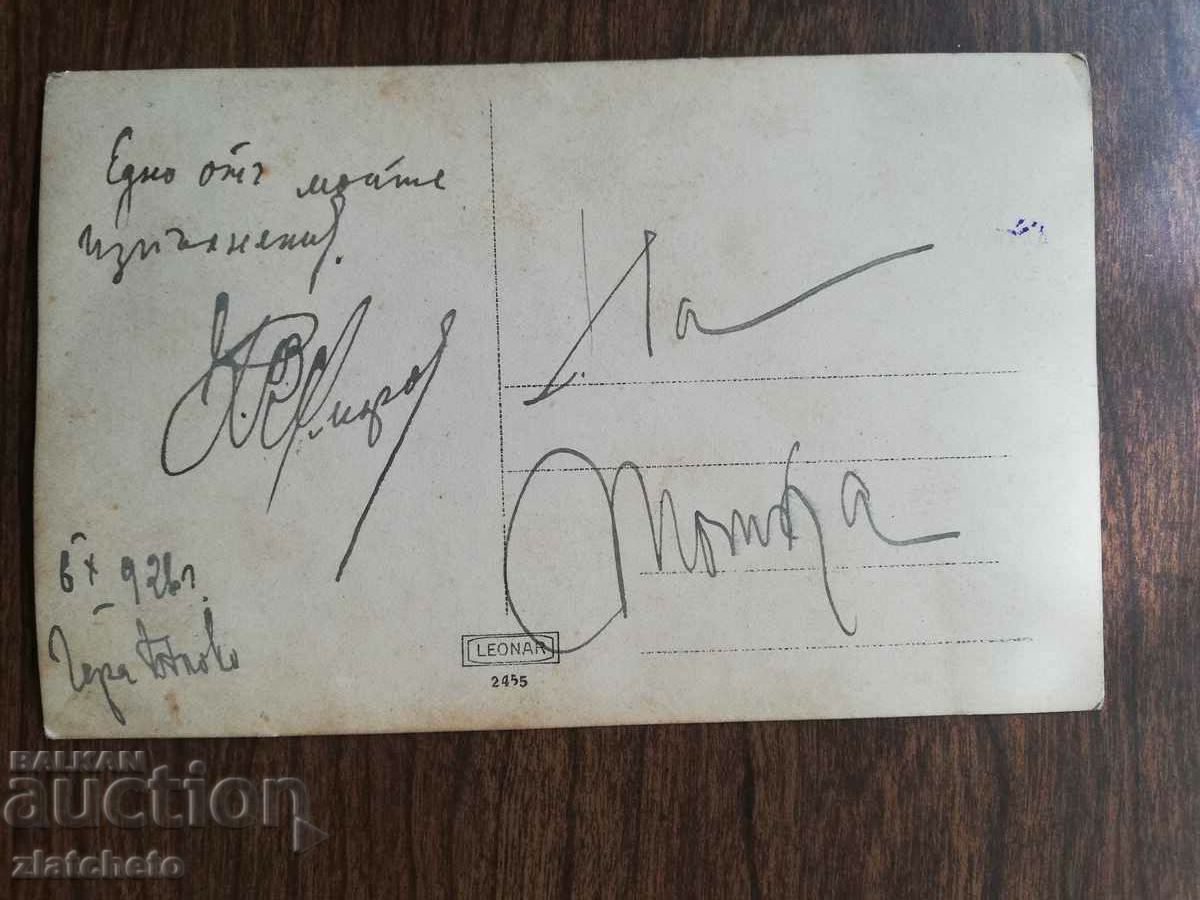 Едно отъ моите
изпълнения.
6 X 928 г.
На
Тотка
LEONAR
2455
BALKAN
auction
zlatcheto